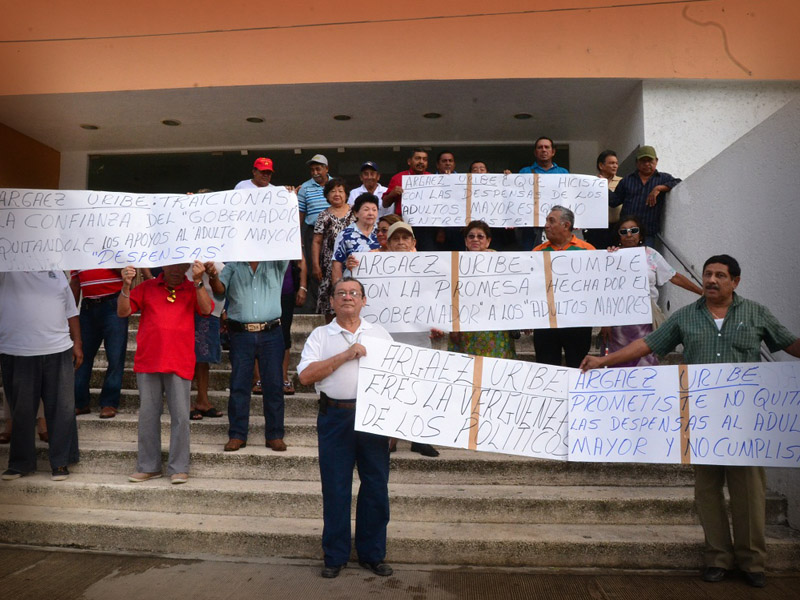 ARGAEZ URIBE: TRAICIONAS
LA CONFIANZA DEL "GOBERNADOR
QUITANDOLE LOS APOYOS AL ADULTO MAYOR
"DESPENSAS"
ARGAEZ URIBE: QUE HICISTE
CON LAS DESPENSAS DE LOS
ADULTOS MAYORES QUE NO
ENTREGASTE.
ARGAEZ URIBE: CUMPLE
CON LA PROMESA HECHA POR EL
GOBERNADOR" A LOS "ADULTOS MAYORES
ARGAEZ URIBE
ERES LA VERGUENZA
DE LOS POLITICOS
ARGAEZ URIBE
PROMETISTE NO QUITA
LAS DESPENSAS AL ADUL
MAYOR Y NO CUMPLIST